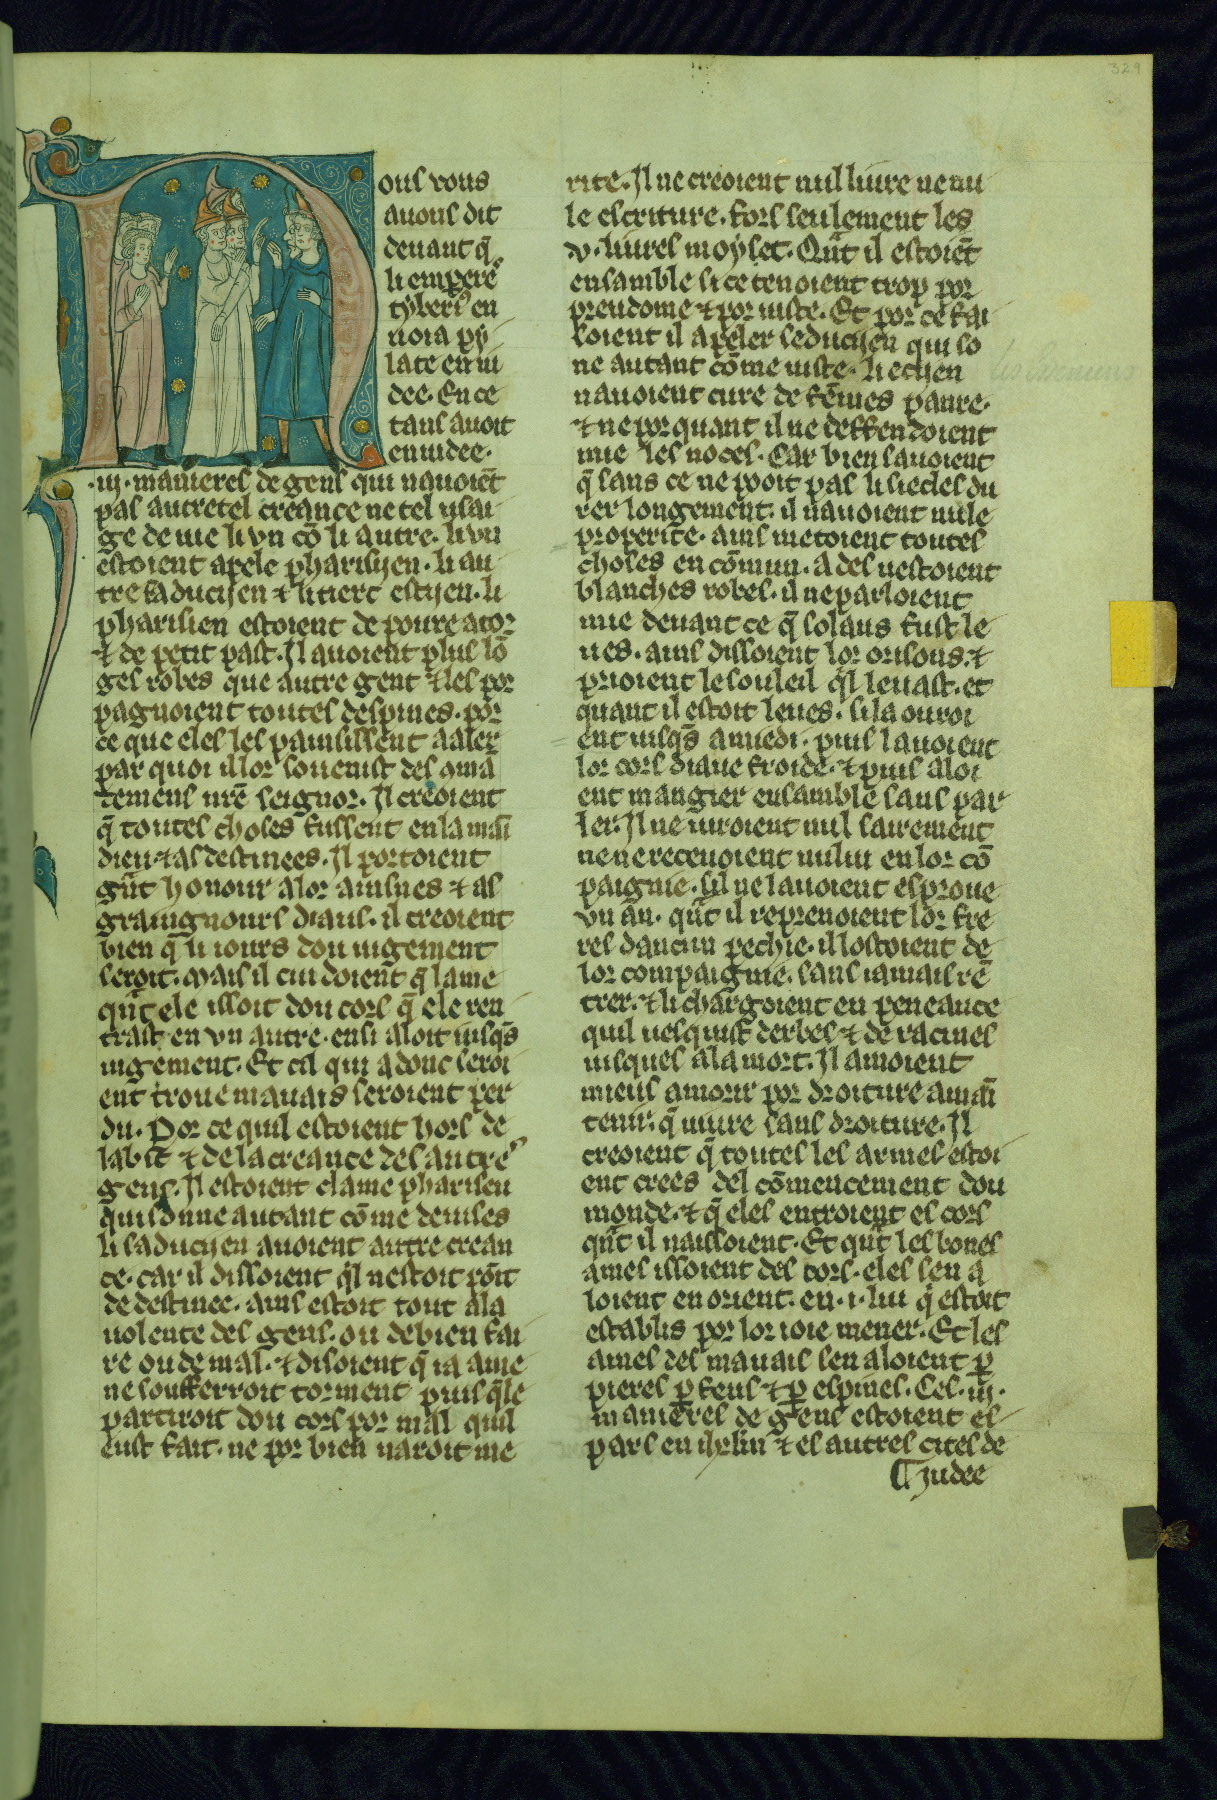 329
ous vous
auons dit
deuant q̄
li emperẽ
tyberꝰ en
uoia py
late en iu
dee. En ce
tans auoit
en iudee.
.iij. manieres de gens qui nauoiẽt
pas autretel creance ne tel usai
ge de uie li vn cõ li autre. li vn
estoient apele pharisijen. li au
tre saducijen ⁊ li tierc essijen. li
pharisien estoient de poure ator
⁊ de petit past. Il auoient plus lõ
ges robes que autre gent ⁊ les por
pagnoient toutes despines. por
ce que eles les painsissent a aler
par quoi il lor souenist des cõmã
demens nrẽ seignor. Il creoient
q̄ toutes choses fussent en la mai
dieu ⁊ as destinees. Il portoient
gũt honour a lor ainsnes ⁊ as
graingnours diaus. il creoient
bien q̄ li iours dou iugement
seroit. Mais il cuidoient q̄ lame
qũt ele issoit dou cors q̄ ele ren
trast en vn autre. ensi aloit iusqs̄
iugement. Et cil qui adonc seroi
ent troue mauais seroient per
du. Por ce quil estoient hors de
labit ⁊ de la creance des autrẽ
gens. Il estoient clame phariseu
qui sonne autant cõme deuises
li saducijen auoient autre crean
ce. car il dissoient ql̃ nestoit põit
de destinee. ains estoit tout a la
uolente des gens. ou de bien fai
re ou de mal. ⁊ disoient q̄ ia ame
ne soufferroit torment puis q̄le
partiroit dou cors por mal quil
eust fait. ne por bien naroit me
rite. Il ne creoient nul liure ne nu
le escriture. fors seulement les
.v. liures moyset. Qũt il estoiẽt
ensamble si ce tenoient trop por
preudome ⁊ por iuste. Et por ce fai
soient il apeler seducijen qui so
ne autant cõme iuste. li ecijen
nauoient cure de fẽmes panre.
⁊ ne por quant il ne deffendoient
mie les noces. Car bien sauoient
q̄ sans ce ne poit pas li siecles du
rer longement. il nauoient nule
properite. ains metoient toutes
choses en cõmun. ades uestoient
blanches robes. il ne parloient
mie deuant ce q̄ solaus fust le
ues. ains dissoient lor orisons. ⁊
prioient le souleil ql̃ leuast. et
quant il estoit leues. si la ouroi
ent iusqs̄ a miedi. puis lauoient
lor cors diaue froide. ⁊ puis aloi
ent mangier ensamble sans par
ler. Il ne iuroient nul sairement
ne ne receuoient nului en lor cõ
paignie. sil ne lauoient esproue
vn an. qũt il reprenoient lor fre
res daucun pechie. il lostoient de
lor compaignie. sans iamais rẽ
trer. ⁊ li chargoient en peneance
quil uesquist derbes ⁊ de racines
iusques a la mort. Il amoient
mieus a morir por droiture a mai
tenir. q̄ uiure sans droiture. Il
creoient q̄ toutes les armes estoi
ent crees del cõmencement dou
monde. ⁊ q̄ eles entroient es cors
qũt il naissoient. Et qũt les bones
ames issoient des cors. eles sen a
loient en orient. en .i. liu q̄ estoit
establis por lor ioie mener. Et les
ames des mauais sen aloient p̄
pieres p̄ feus ⁊ p̄ espines. Ces .iij.
manieres de gens estoient es
pars en ihrlm̃ ⁊ es autres cites de
Judee